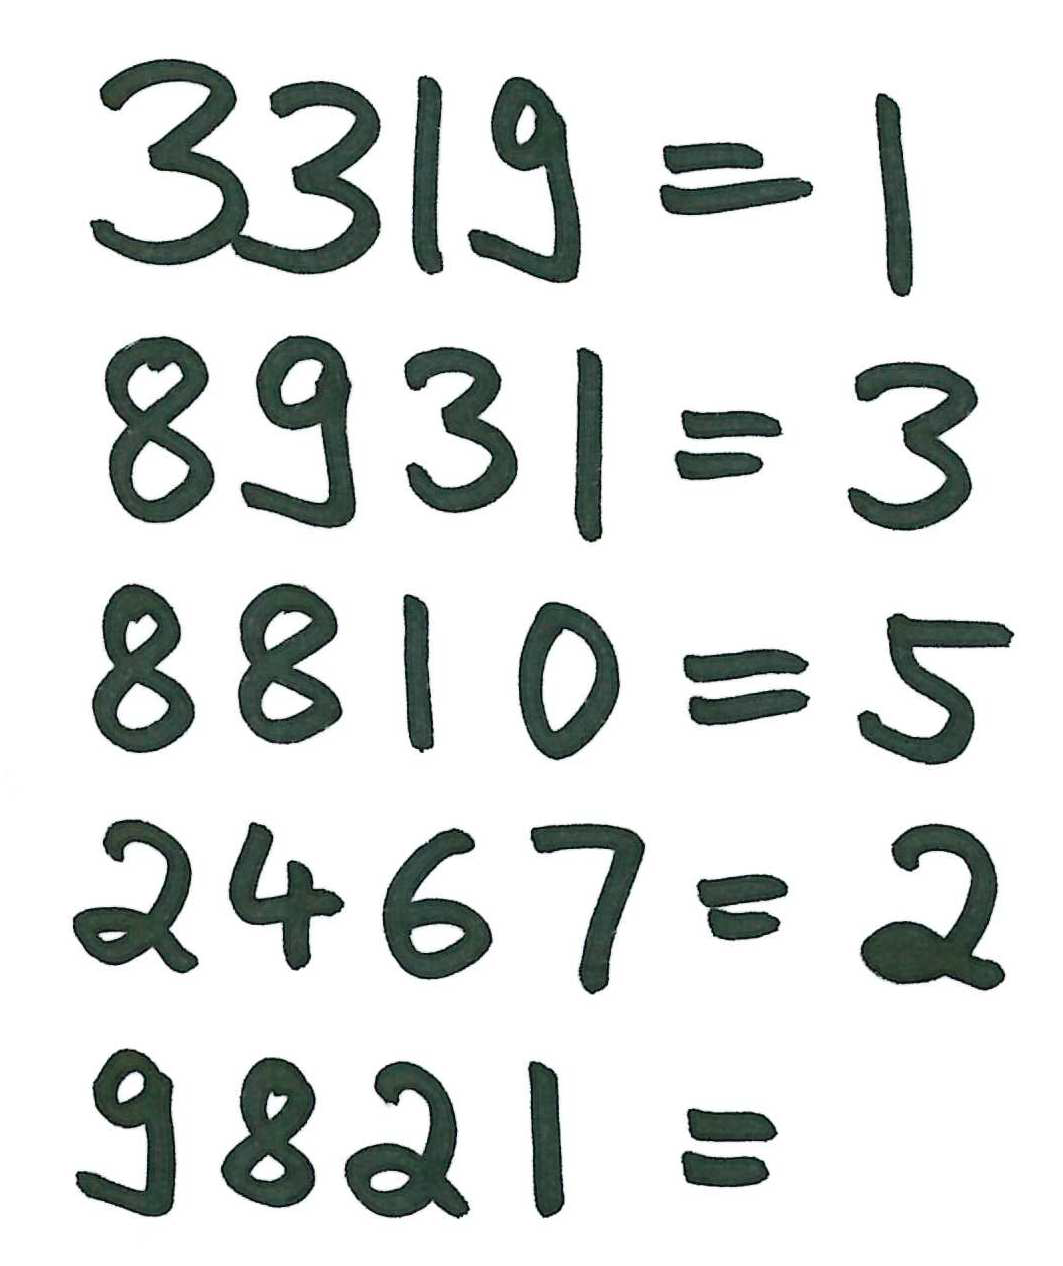 3319 = 1
8931 = 3
8810 = 5
2467 = 2
9821 =